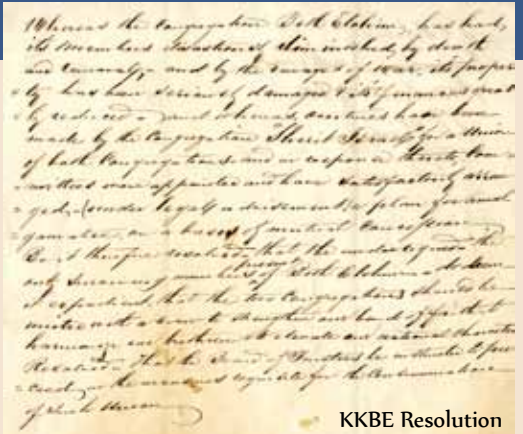 Whereas the Congregation Beth Elohim, has had,
its members disastrously diminished, by death
and and by the ravages of war, its proper
ty has been seriously damaged & its finances great
ly reduced and whereas, overtures have been
made by the Congregation Shearit Israel for a Union
of both Congregations and in response thereto, Com
mittees were appointed and have satisfactorily arran
ged, (under legal advisement) a plan for amal
gamation, on a basis of mutual concession
Be it therefore resolved that the undersigned the
only surviving members of Beth Elohim
it expedient that the two Congregations should be
united with a view to strengthen our bonds of
harmony our brethren & elevate our national character
Resolved That the Board of Trustees be instructed to pro
ceed, in the measures requisite for the Consummation
of Such Union
KKBE Resolution